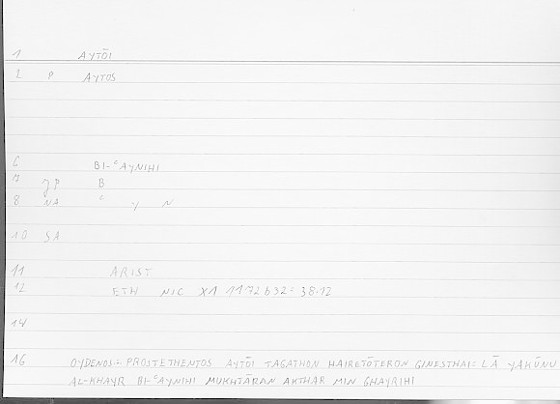 1 AYTŌI
2 P AYTOS
6 BI-ʿAYNIHI
7 JP B
8 NA ʿ Y N
10 SA
11 ARIST
12 ETH NIC X1 1172b32: 38.12
14
16 OYDENOS.. PROSTETHENTOS AYTŌI TAGATHON HAIRETŌTERON GINESTHAI: LĀ YAKŪNU
AL-KHAYR BI-ʿAYNIHI MUKHTĀRAN AKTHAR MIN GHAYRIHI